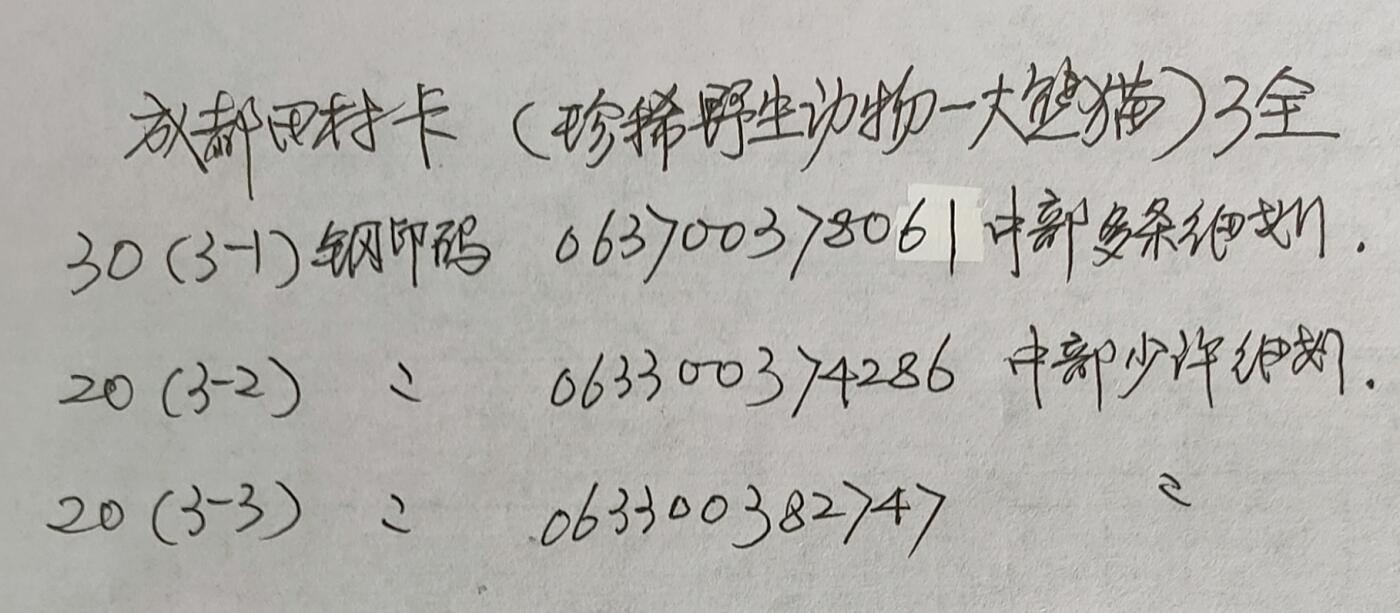 成都田村卡（珍稀野生动物一大熊猫）3全
30（3-1）钢印码 063700378061 中部多条细划.
20（3-2） 〻 063300374286 中部少许细划.
20（3-3） 〻 063300382747 〻